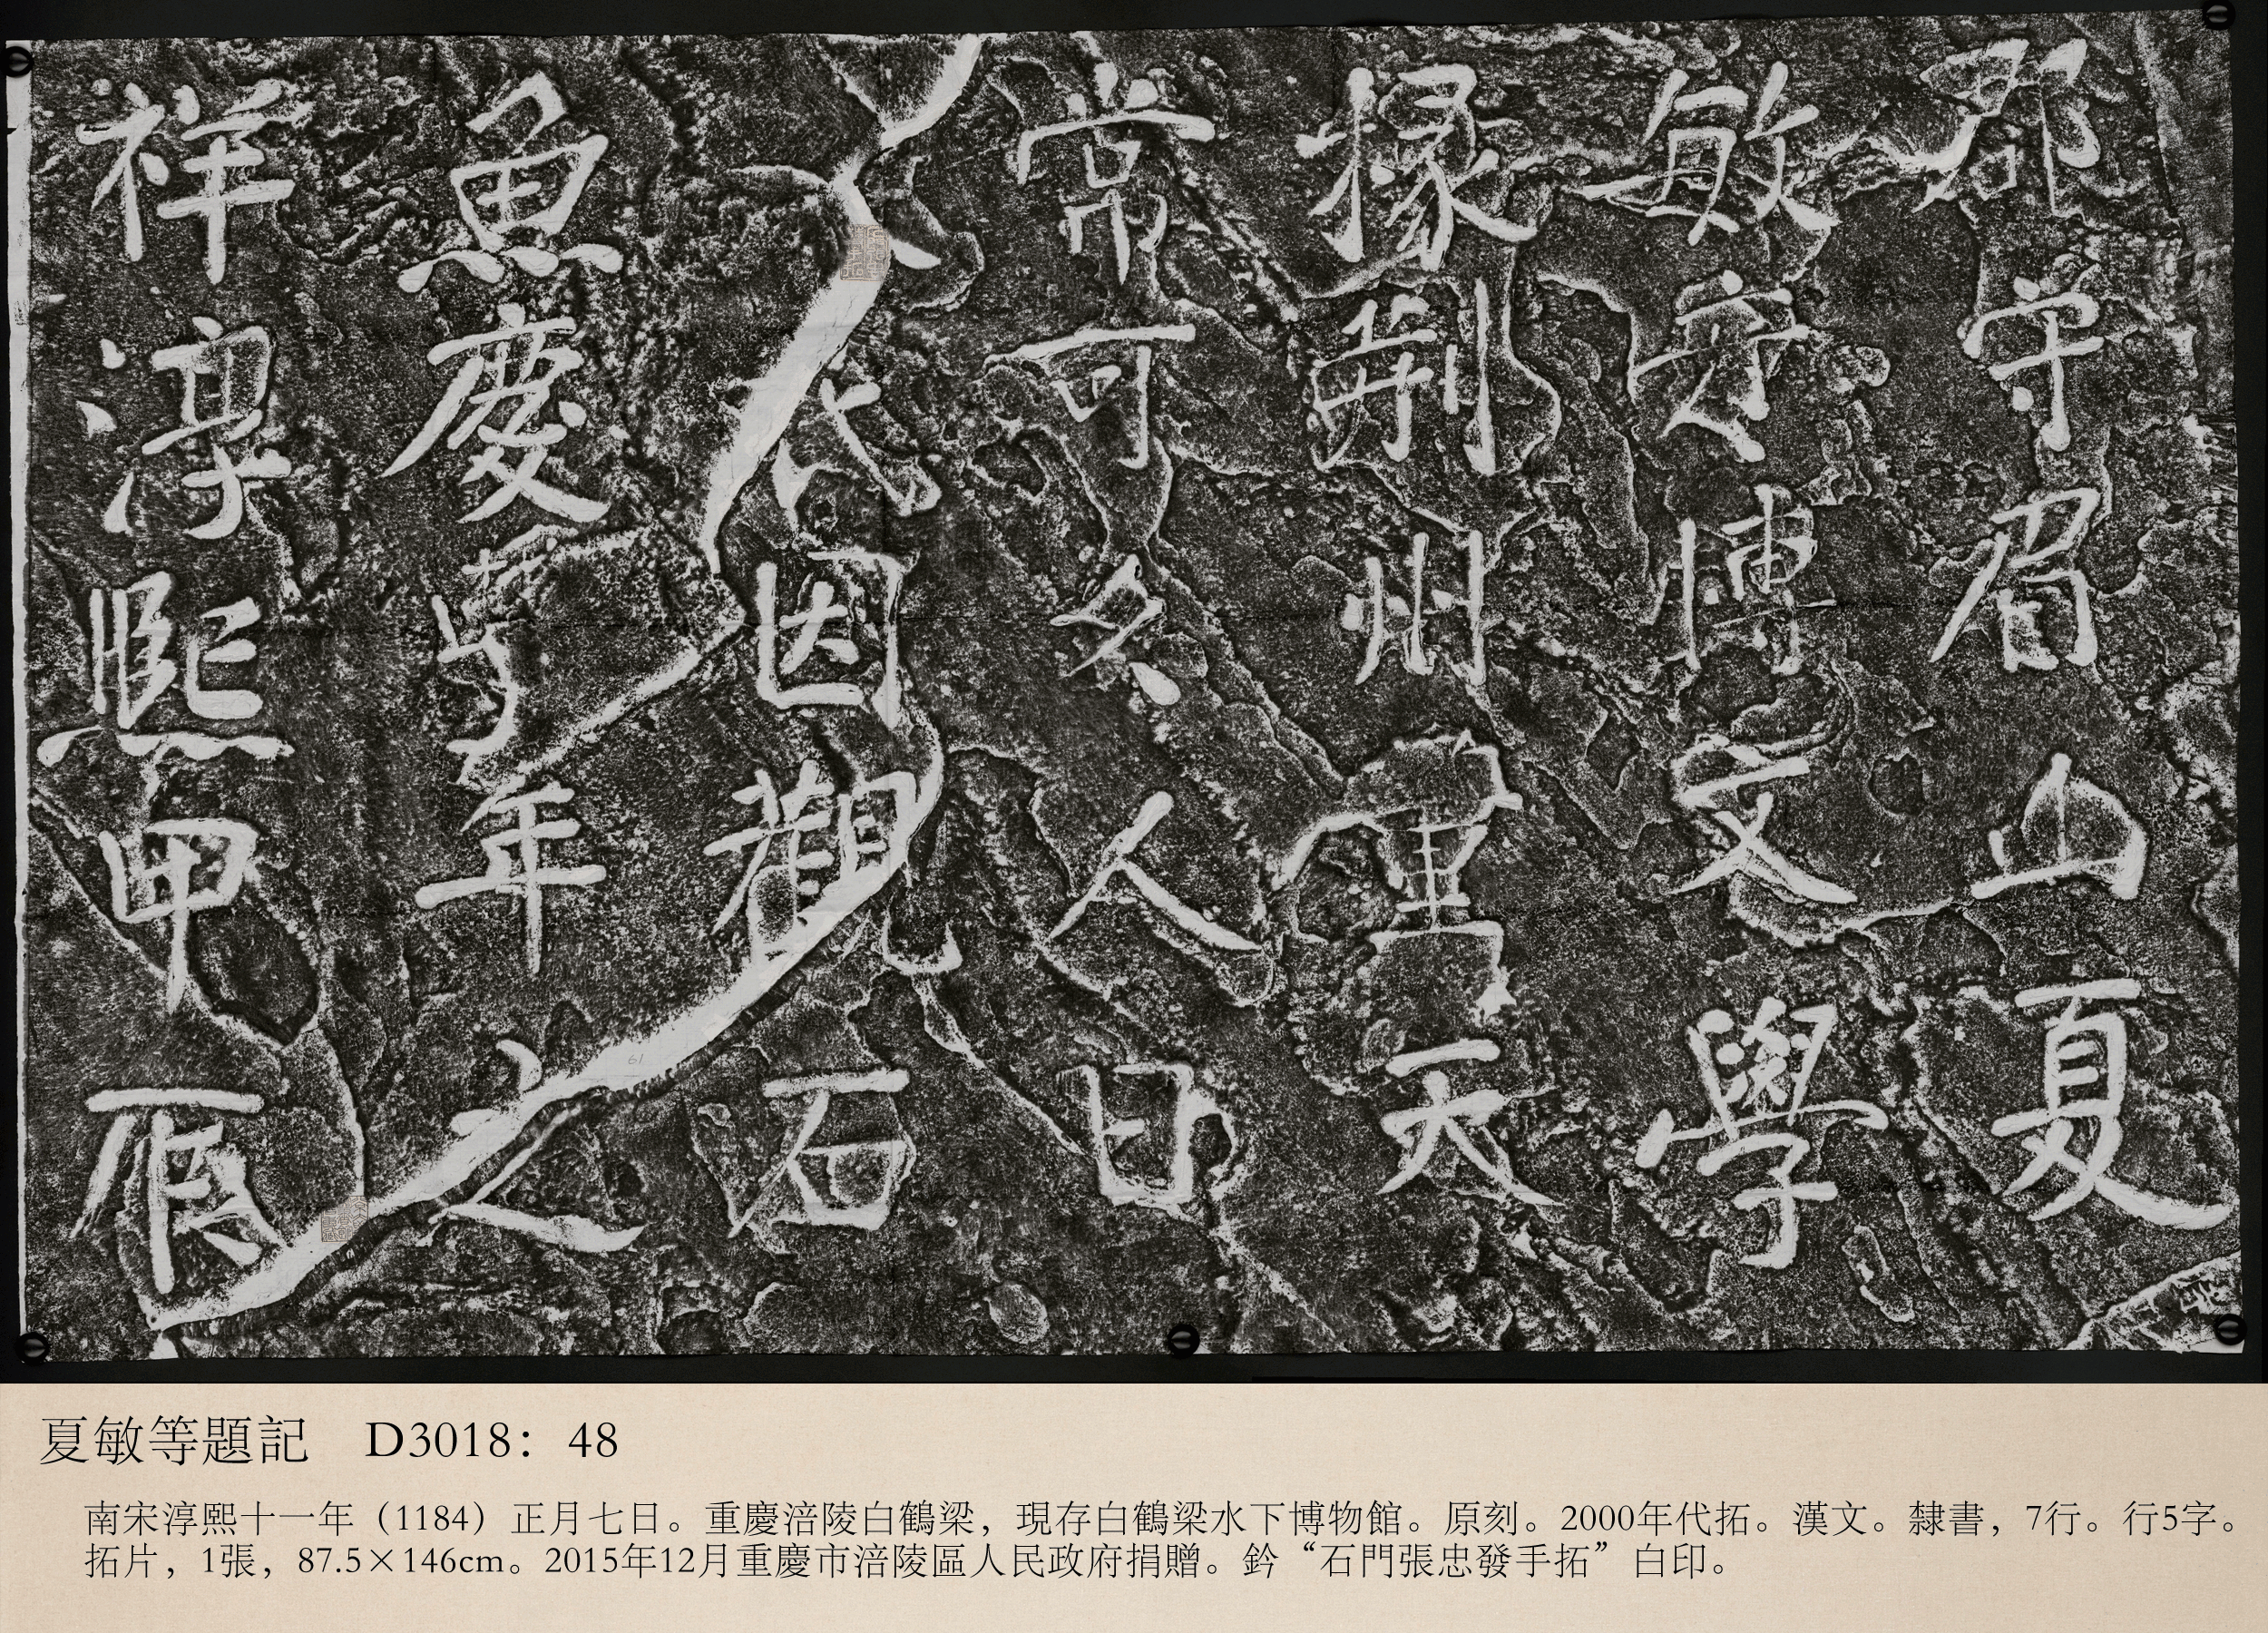 郡守眉山夏
敏彥博文學
掾荊州董天
常可久人日
因觀石
魚慶年之
祥淳熙甲辰
61
夏敏等題記 D3018：48
南宋淳熙十一年（1184）正月七日。重慶涪陵白鶴梁，現存白鶴梁水下博物館。原刻。2000年代拓。漢文。隸書，7行。行5字。
拓片，1張，87.5×146cm。2015年12月重慶市涪陵區人民政府捐贈。鈐“石門張忠發手拓”白印。